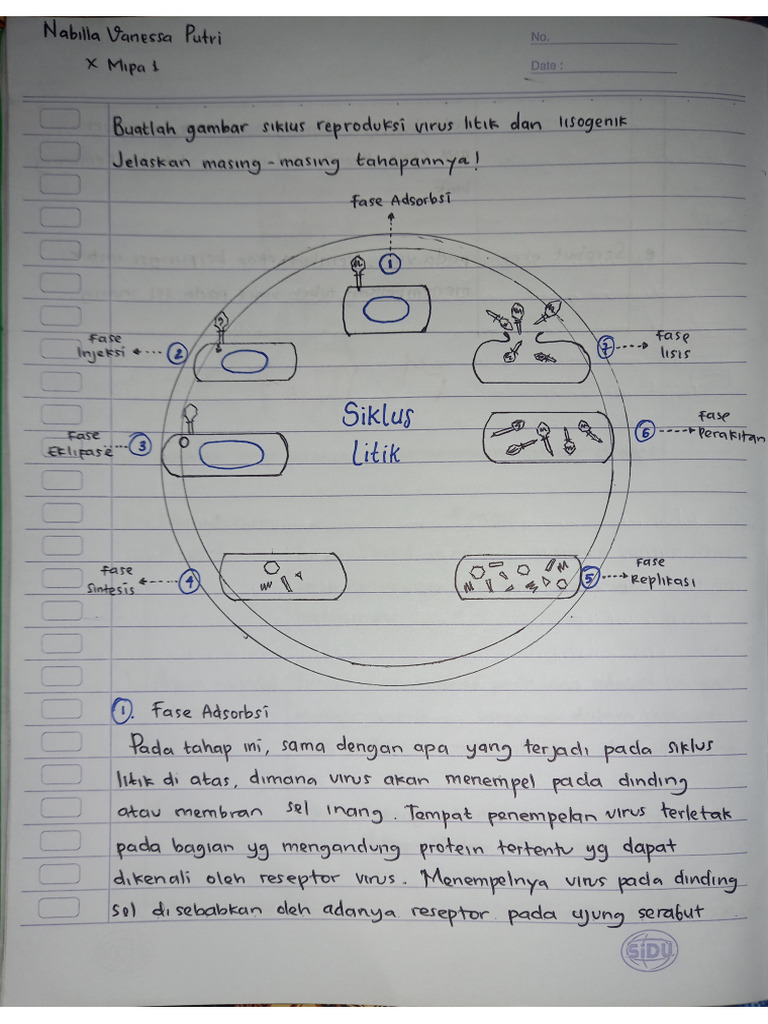 Nabilla Vanessa Putri
X Mipa 1
No.
Date :
Buatlah gambar siklus reproduksi virus litik dan lisogenik
Jelaskan masing-masing tahapannya!
Fase Adsorbsi
1
Fase
Injeksi
2
7
Fase
lisis
Siklus
Litik
Fase
Eklifase
3
6
Fase
Perakitan
Fase
Sintesis
4
5
Fase
Replikasi
1. Fase Adsorbsi
Pada tahap ini, sama dengan apa yang terjadi pada siklus
litik di atas, dimana virus akan menempel pada dinding
atau membran sel inang. Tempat penempelan virus terletak
pada bagian yg mengandung protein tertentu yg dapat
dikenali oleh reseptor virus. Menempelnya virus pada dinding
sel disebabkan oleh adanya reseptor pada ujung serabut
SiDU